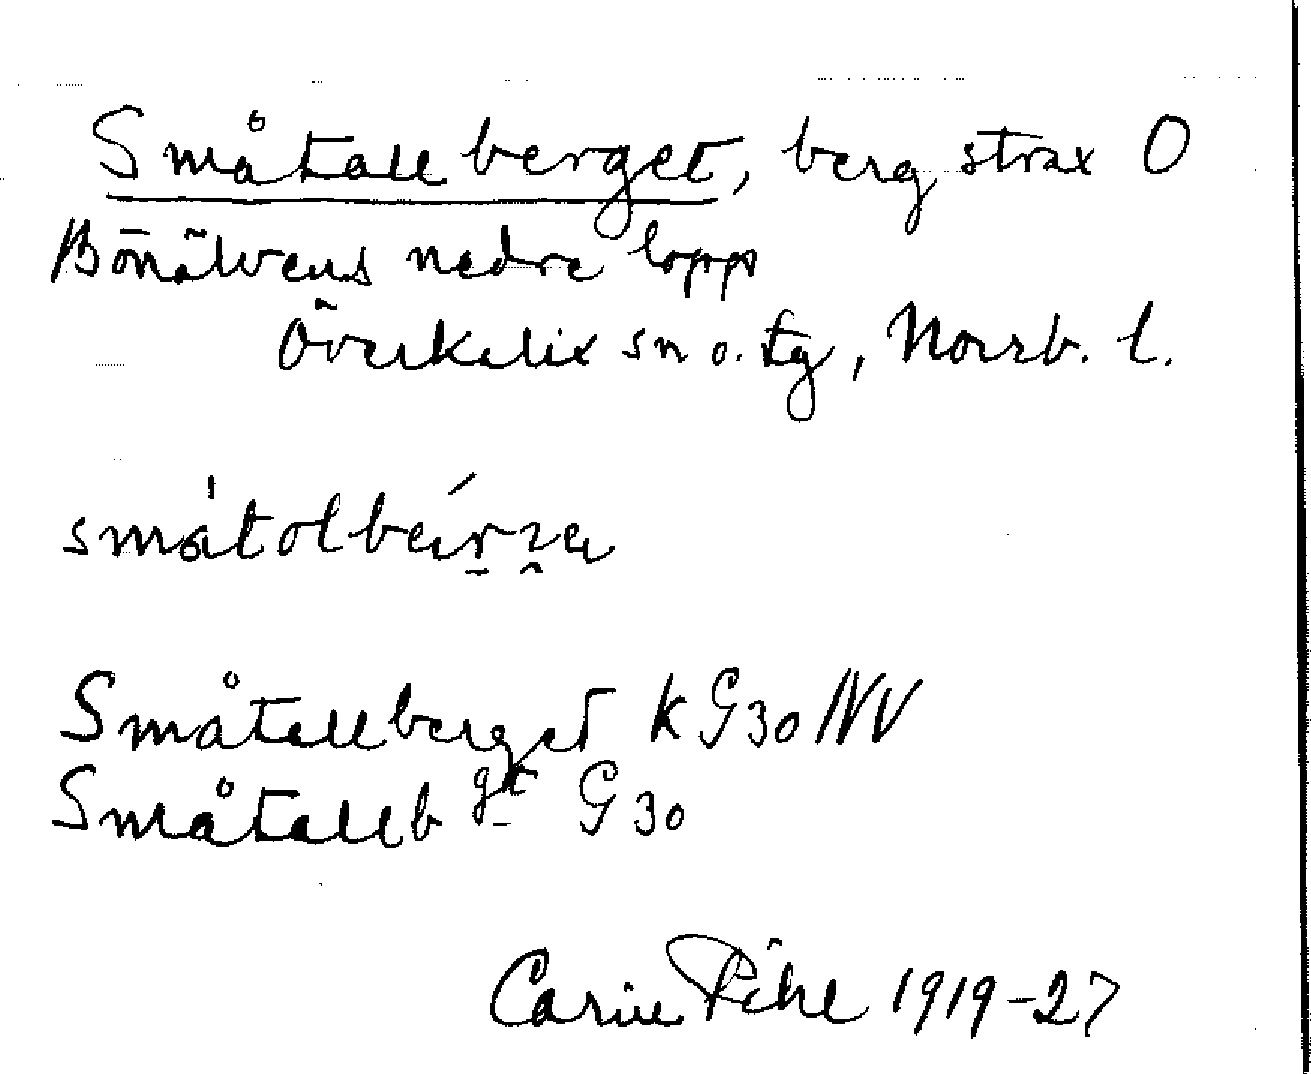 Småtallberget, berg strax O
Bönälvens nedre lopp
Överkalix sn o. tg, Norrb. l.
Småtallberget K G30 NV
Småtallb gt G30
Carin Pihl 1919-27